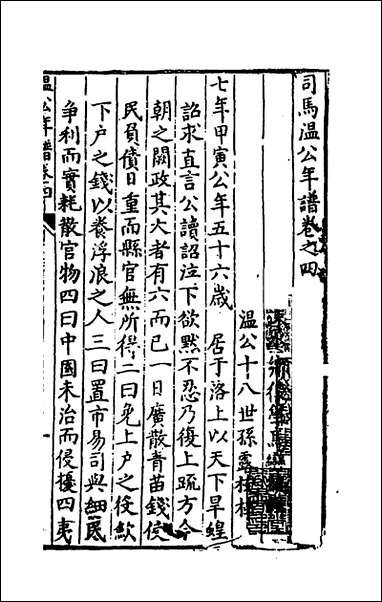 司馬溫公年譜卷之四
溫公十八世孫露校梓
七年甲寅公年五十六歲　居于洛上以天下旱蝗
詔求直言公讀詔泣下欲默不忍乃復上疏方今
朝之闕政其大者有六而已一曰廣散青苗錢使
民負債日重而縣官無所得二曰免上戶之役斂
下戶之錢以養浮浪之人三曰置市易司與細民
爭利而實耗散官物四曰中國未治而侵擾四夷
溫公年譜卷四